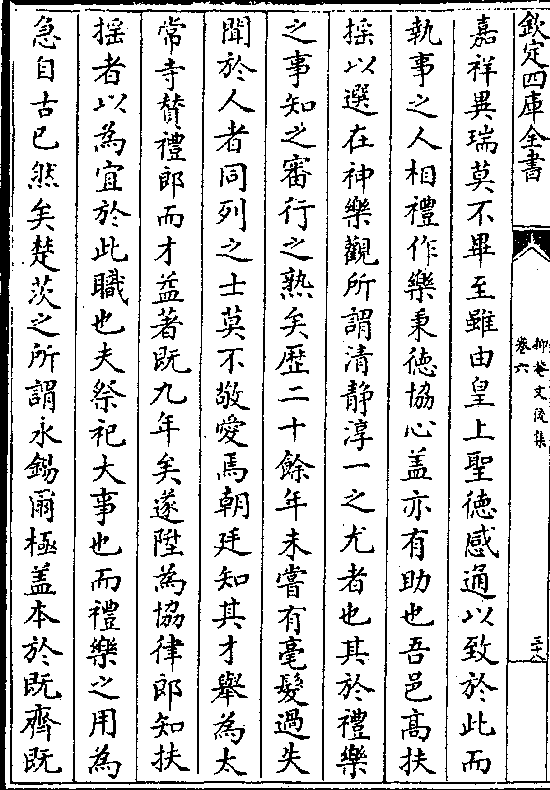 欽定四庫全書
抑菴文後集
卷六
嘉祥異瑞莫不畢至雖由皇上聖德感通以致於此而
執事之人相禮作樂秉徳協心盖亦有助也吾邑髙扶
揺以選在神樂觀所謂清靜淳一之尤者也其於禮樂
之事知之審行之熟矣歴二十餘年未嘗有毫髮過失
聞於人者同列之士莫不敬愛焉朝廷知其才舉為太
常寺賛禮郎而才益著既九年矣遂陞為協律郎知扶
揺者以為宜於此職也夫祭祀大事也而禮樂之用為
急自古已然矣楚茨之所謂永錫爾極盖本於既齊既